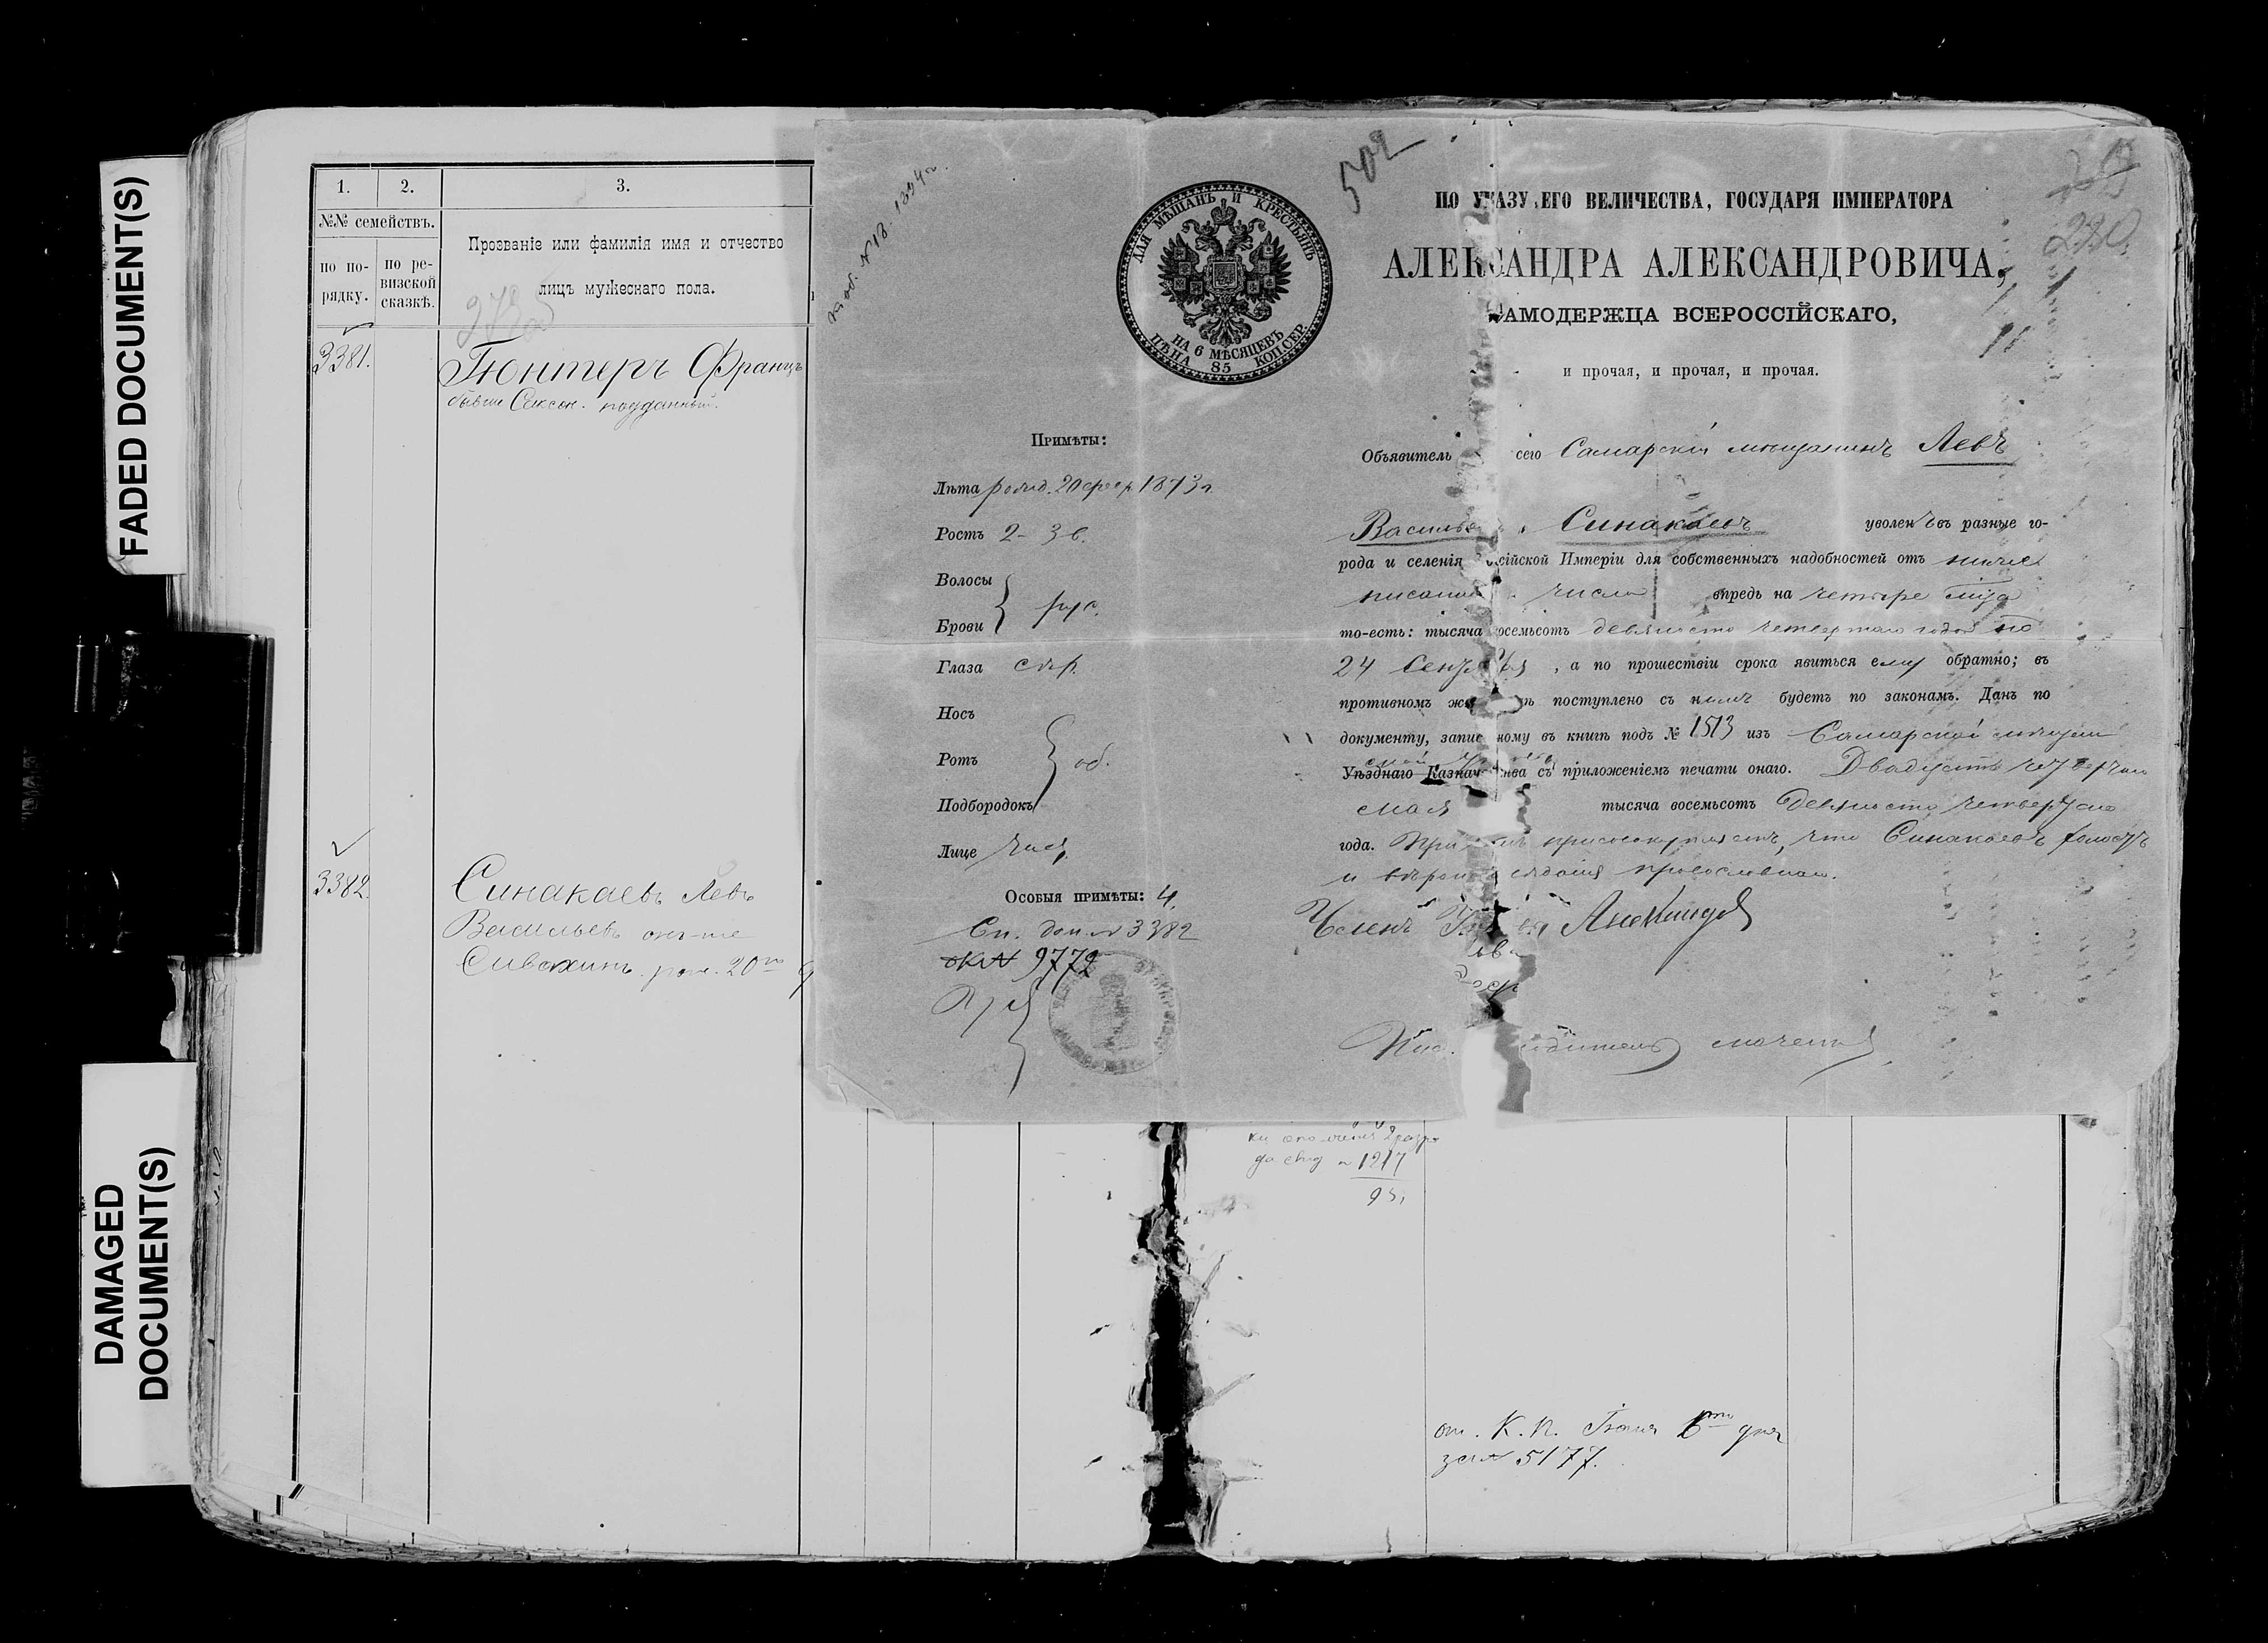 FADED DOCUMENT(S)
DAMAGED
DOCUMENT(S)
1.
2.
3.
№№ семействъ.
по по-
рядку.
по ре-
визской
сказкѣ.
Прозваніе или фамилія имя и отчество
лицъ мужескаго пола.
3381.
Гюнтеръ Францъ
бывш Саксон. подданный.
3382.
Синакаевъ Левъ
Васильевъ онъ-же
Сивохинъ. рож. 20го
№ 18. 1894 г.
502
230
ДЛЯ МѢЩАНЪ И КРЕСТЬЯНЪ
НА 6 МѢСЯЦЕВЪ
ЦѢНА 85 КОП. СЕР.
ПО УКАЗУ ЕГО ВЕЛИЧЕСТВА, ГОСУДАРЯ ИМПЕРАТОРА
АЛЕКСАНДРА АЛЕКСАНДРОВИЧА,
САМОДЕРЖЦА ВСЕРОССІЙСКАГО,
и прочая, и прочая, и прочая.
Примѣты:
Лѣта рожд. 20 февр 1873 г.
Ростъ 2 - 3 в.
Волосы
Брови } рус.
Глаза сѣр.
Носъ
Ротъ } об.
Подбородокъ
Лице чист.
Особыя примѣты:
Сп. доп. № 3382
9772
Объявитель сего Самарскій мѣщанинъ Левъ
Васильев Синакаевъ уволенъ въ разные го-
рода и селенія Россійской Имперіи для собственныхъ надобностей отъ ниже
писаннаго числа впредь на четыре мѣсяца
то-есть: тысяча восемьсотъ девяносто четвертаго года по
24 Сентября, а по прошествіи срока явиться ему обратно; въ
противномъ же поступлено съ нимъ будетъ по законамъ. Данъ по
документу, записанному въ книгѣ подъ № 1513 изъ Самарской мѣщан
ской Управы
Уѣзднаго Казначейства съ приложеніемъ печати онаго. Двадцать четвертаго
мая тысяча восемьсотъ девяносто четвертаго
года. При чемъ присовокупляетъ, что Синакаевъ холостъ
и вѣроисповѣданія православнаго.
Членъ Управы
Дѣлопроизводитель
ки ополченія 2 разря
да свид № 1217
95
от. К. П. Іюня 6го дня
за № 5177.